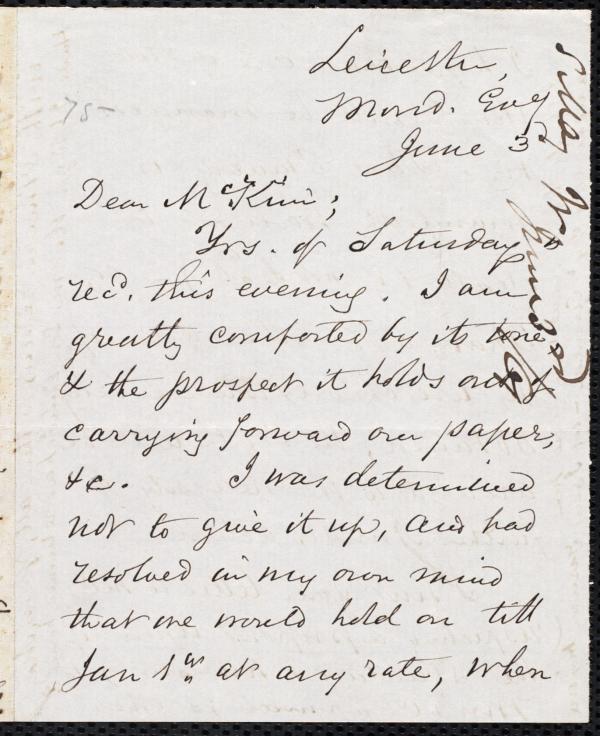 Leicester,
Mond. Evg
June 3d
75-
Dear McKim;
Yrs. of Saturday
rec'd. this evening. I am
greatly comforted by its tone
& the prospect it holds out of
carrying forward our paper,
&c. I was determined
not to give it up, and had
resolved in my own mind
that we would hold on till
Jan 1st at any rate, when
S. May Jr
June 3d